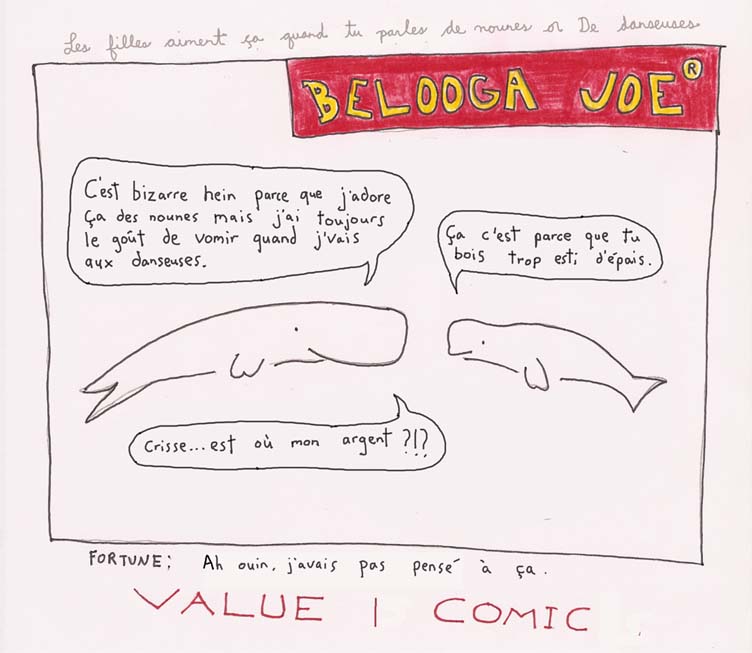 Les filles aiment ça quand tu parles de nounes or De danseuses
BELOOGA JOE®
C'est bizarre hein parce que j'adore
ça des nounes mais j'ai toujours
le goût de vomir quand j'vais
aux danseuses.
Ça c'est parce que tu
bois trop esti d'épais.
Crisse...est où mon argent ?!?
FORTUNE: Ah ouin, j'avais pas pensé à ça.
VALUE | COMIC